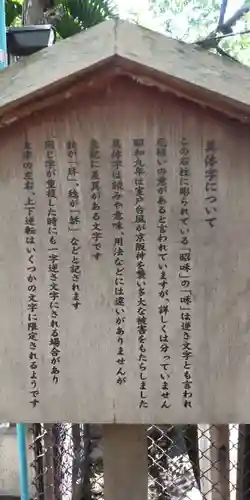 異体字について
この石柱に彫られている「昭咊」の「咊」は逆さ文字とも言われ
厄払いの意があると言われていますが、詳しくは分っていません
昭和九年は室戸台風が京阪神を襲い多大な被害をもたらしました
異体字は読みや意味、用法などには違いがありませんが
表記に差異がある文字です
秋が「秌」、稔が「䄒」などと記されます
同じ字が重複した時にも一字逆さ文字にされる場合があり
文字の左右、上下逆転はいくつかの文字に限定されるようです